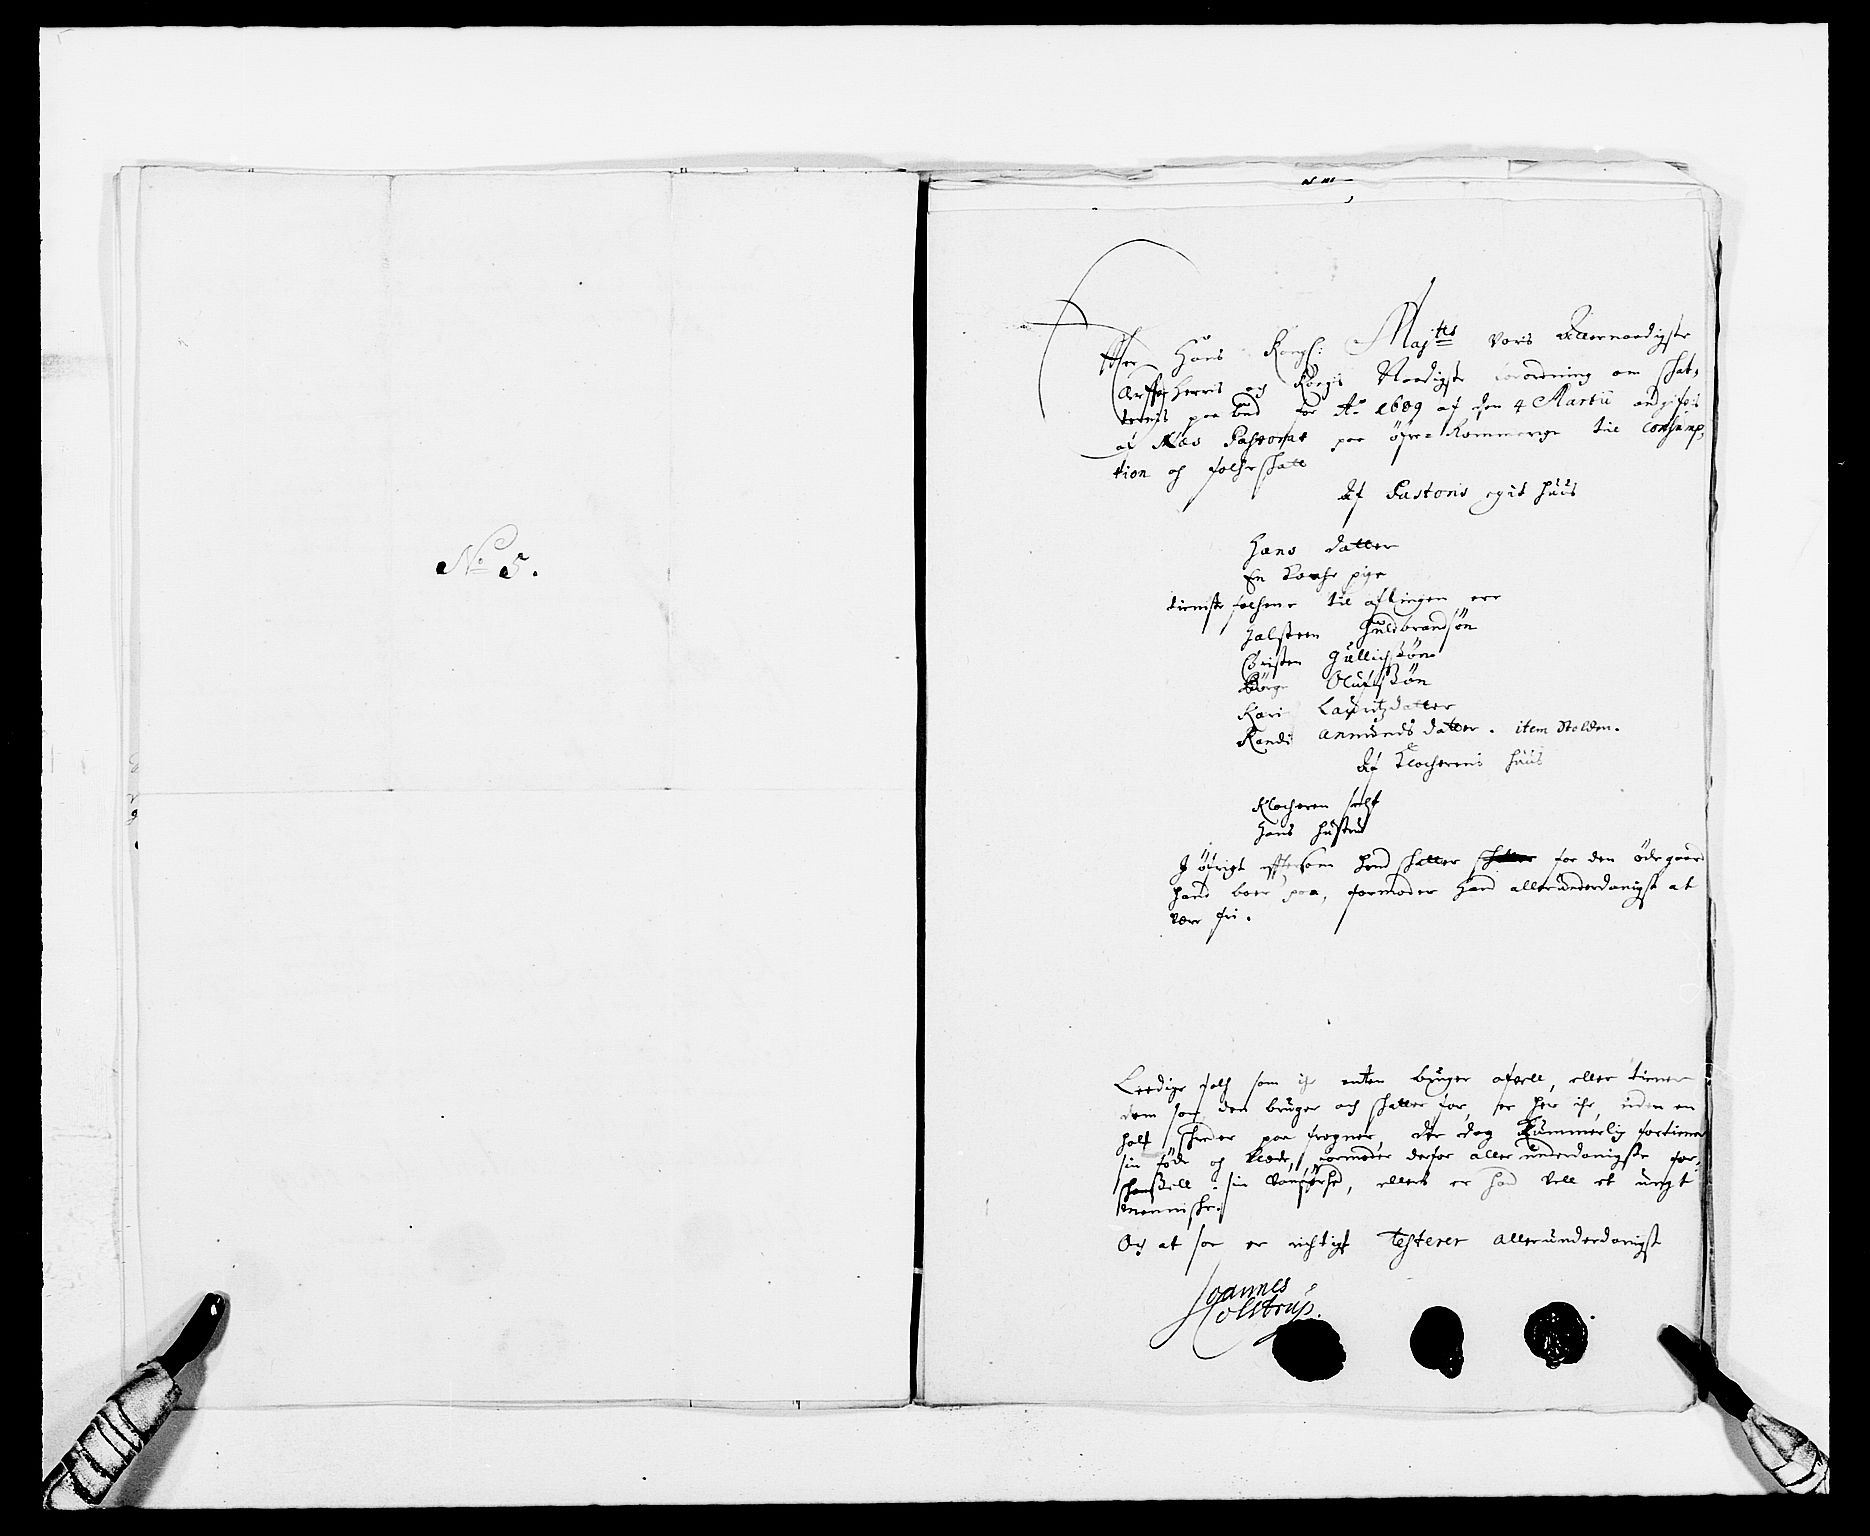 No 5.
Effter Hans Kongl: Majtts voris Allernaadigste
Arffve Herris och Kongis Naadigste forordning om skat-
ternis paabud for Ao 1689 af den 4 Martii andgifvis
af Næs Pastorat paa øfre Rommerige til Consump-
tion og folcheskatt
Af Pastoris eget huus
Hans datter
En Kocke pige
tieniste folchene til aflingen ere
Halsteen Guldbrandsøn
Christen Gullichsøn
Børge Olufsøn
Kari Lauritzdatter
Randi Anmunds datter. item Stolden.
Af Klocherens huus
Klocheren self
Hans hustru
J øfrigt efftersom hand skatter for den ødegaard
hand boer paa, formoder Hand allerunderdanigst at
være fri.
Leedige folch som ey enten bruger afvell, eller tiener
dem som den bruger och skatter for, er her iche, uden en
half skreder paa frogner, der dog Kummerlig fortiener
sin føde og klæde, formoder derfor allerunderdanigste for-
skaansell i sin Vanførhed, ellers er hand vell et ungt
Menniske.
Och at saa er richtigt Testerer allerunderdanigst
Joannes
Colstrup.